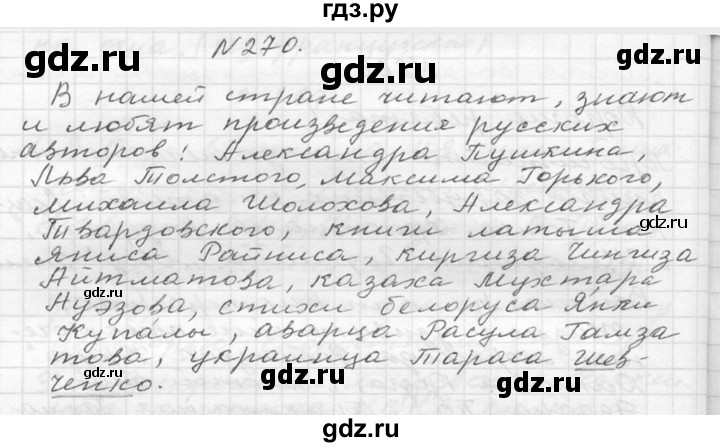 гдз.ру
№270.
В нашей стране читают, знают
и любят произведения русских
авторов: Александра Пушкина,
Льва Толстого, Максима Горького,
Михаила Шолохова, Александра
Твардовского, книги латыша
Яниса Райниса, киргиза Чингиза
Айтматова, казаха Мухтара
Ауэзова, стихи белоруса Янки
Купалы, аварца Расула Гамза
това, украинца Тараса Шев-
ченко.
gdz.ru
gdz.ru
gdz.ru
gdz.ru
gdz.ru
gdz.ru
gdz.ru
gdz.ru
gdz.ru
gdz.ru
gdz.ru
gdz.ru